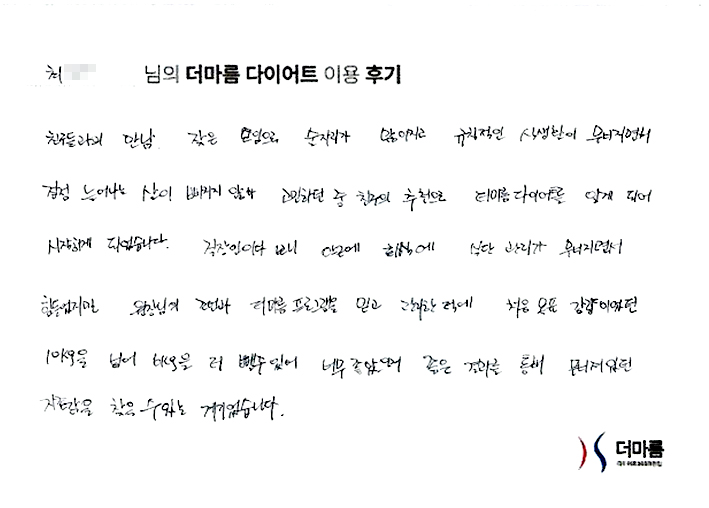 최 님의 더마름 다이어트 이용 후기
친구들과의 만남 잦은 모임으로 술자리가 많아지고 규칙적인 식생활이 무너지면서
점점 늘어나는 살이 빠지지 않아 고민하던 중 친구의 추천으로 더마름다이어트를 알게 되어
시작하게 되었습니다. 직장인이다 보니 야근에 회식에 식단 관리가 무너지면서
힘들었지만 원장님의 조언과 더마름 프로그램을 믿고 관리한 덕에 처음 목표 감량이었던
을 넘어 을 더 뺄수 있어 너무 좋았으며 좋은 결과를 통해 무너져있던
자존감을 찾을 수 있는 계기였습니다.
더마름